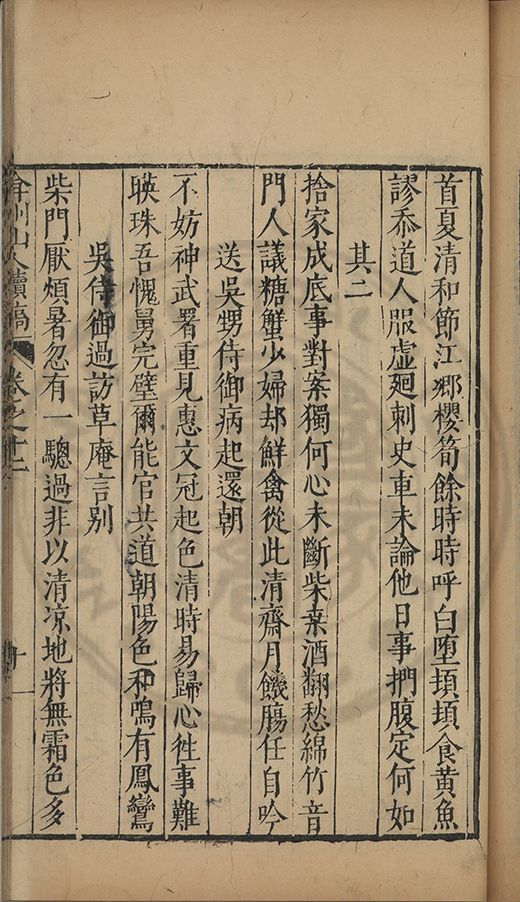 首夏清和節江鄉櫻筍餘時時呼白墮頓頓食黄魚
謬忝道人服虚廻刺史車未論他日事捫腹定何如
其二
捨家成底事對案獨何心未斷柴桒酒翻愁綿竹音
門人議糖蟹少婦却鮮禽從此清齋月饑腸任自吟
送吳甥侍御病起還朝
不妨神武署重見惠文冠起色清時易歸心徃事難
暎珠吾愧舅完璧爾能官共道朝陽色和鳴有鳳鸞
吳侍御過訪草庵言别
柴門厭煩暑忽有一驄過非以清凉地將無霜色多
弇州山人續稿 卷之十二 十一